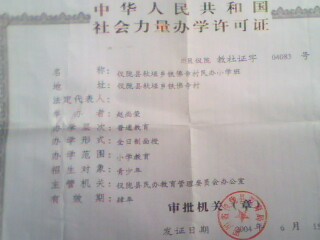 中华人民共和国
社会力量办学许可证
教社证字 04085 号
名称：仪陇县秋垭乡铁佛寺村民办小学班
地址：仪陇县秋垭乡铁佛寺村
法定代表人：
举办者：赵尚荣
办学层次：普通教育
办学形式：全日制面授
办学范围：小学教育
招生对象：青少年
主管机关：仪陇县民办教育管理委员会办公室
有效期：肆年
审批机关（章）
发证日期：2004年6月15